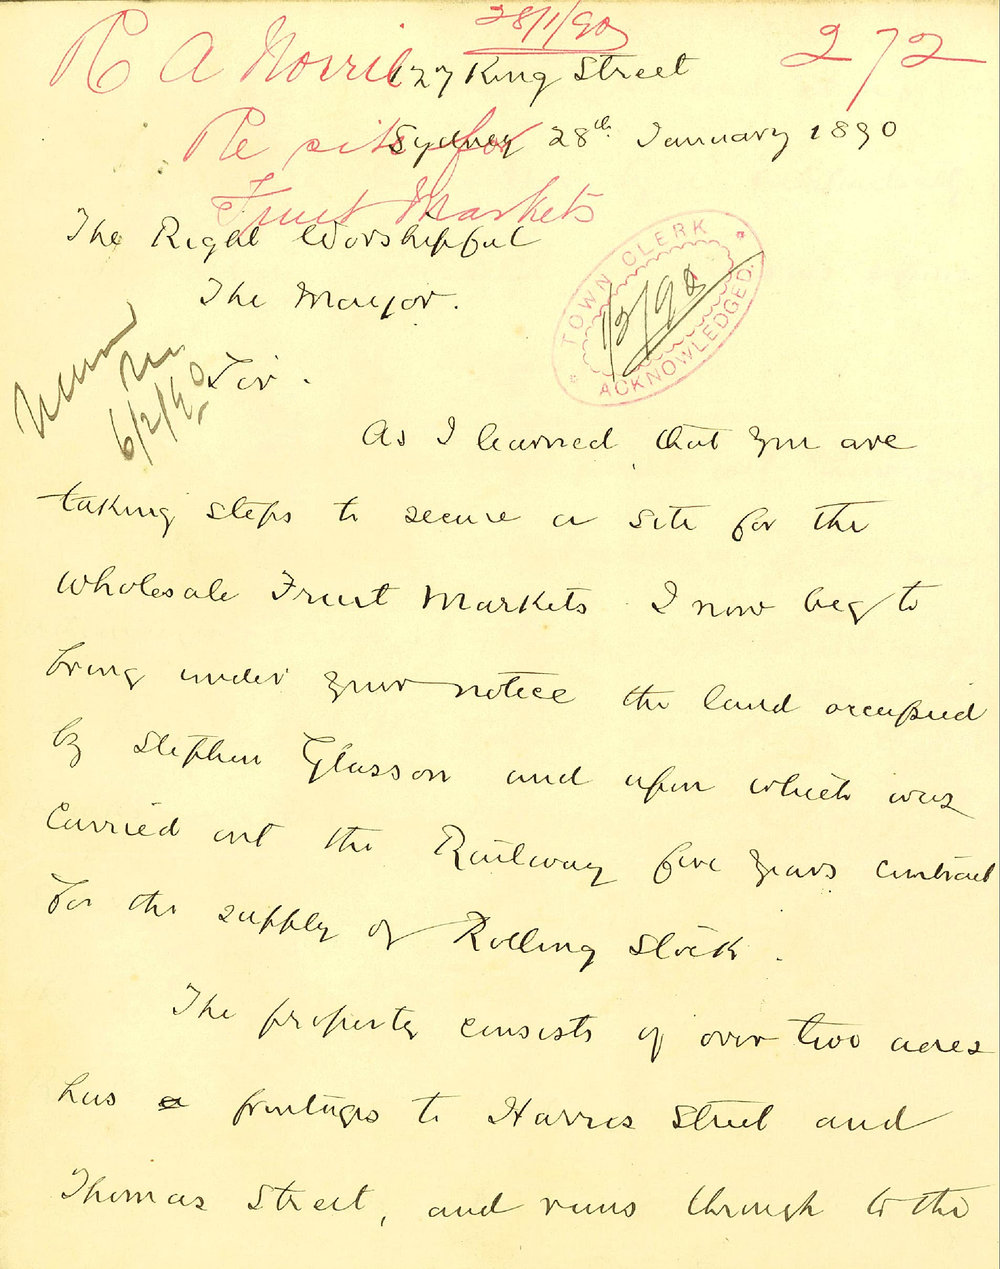 28/1/90
272
R A Morris
127 King Street
Re site for
Sydney 28th January 1890
Fruit Markets
The Right Worshipful
The Mayor.
TOWN CLERK
1/2/90
ACKNOWLEDGED.
6/2/90
Sir.
As I learned, that you are
taking steps to secure a site for the
wholesale Fruit Markets. I now beg to
bring under your notice the land occupied
by Stephen Glasson and upon which was
carried out the Railway five years contract
for the supply of Rolling Stock.
The property consists of over two acres
has frontages to Harris Street and
Thomas Street, and runs through to the